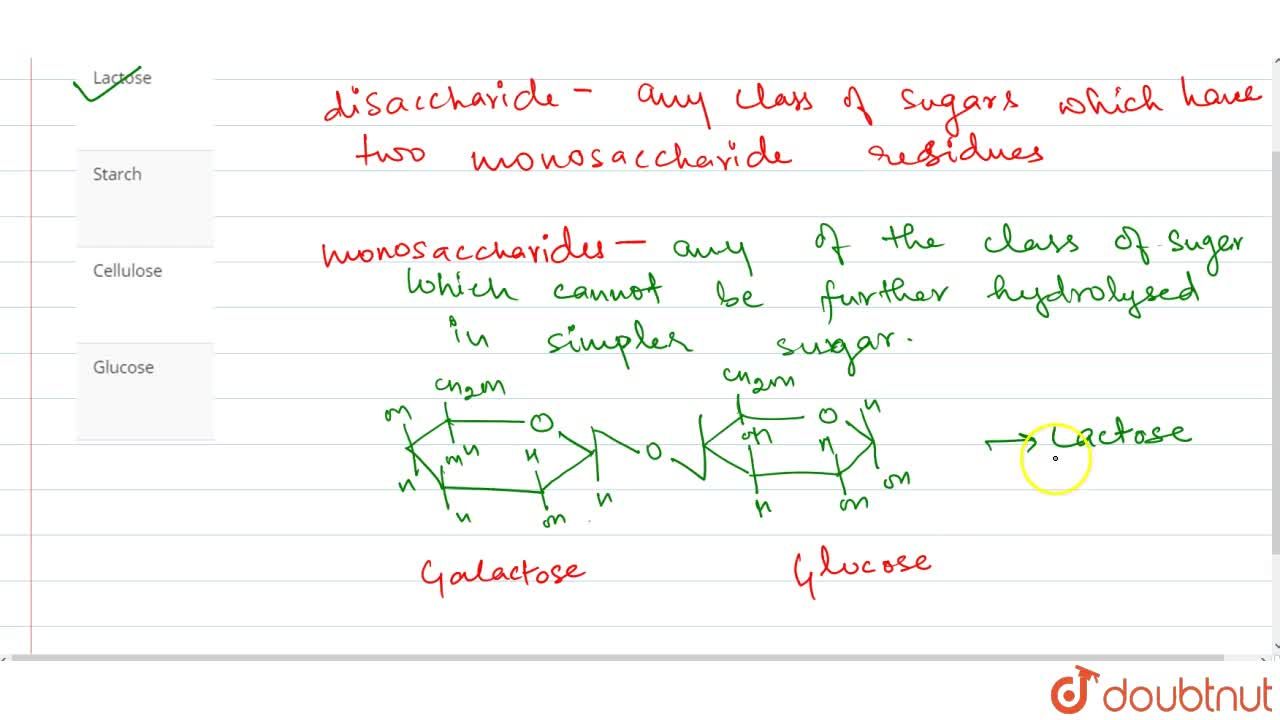 Lactose
disaccharide - any class of sugars which have
two monosaccharide residues
Starch
monosaccharides - any of the class of suger
which cannot be further hydrolysed
in simpler sugar.
Cellulose
Glucose
O
O
O
H
→ Lactose
Galactose
Glucose
doubtnut